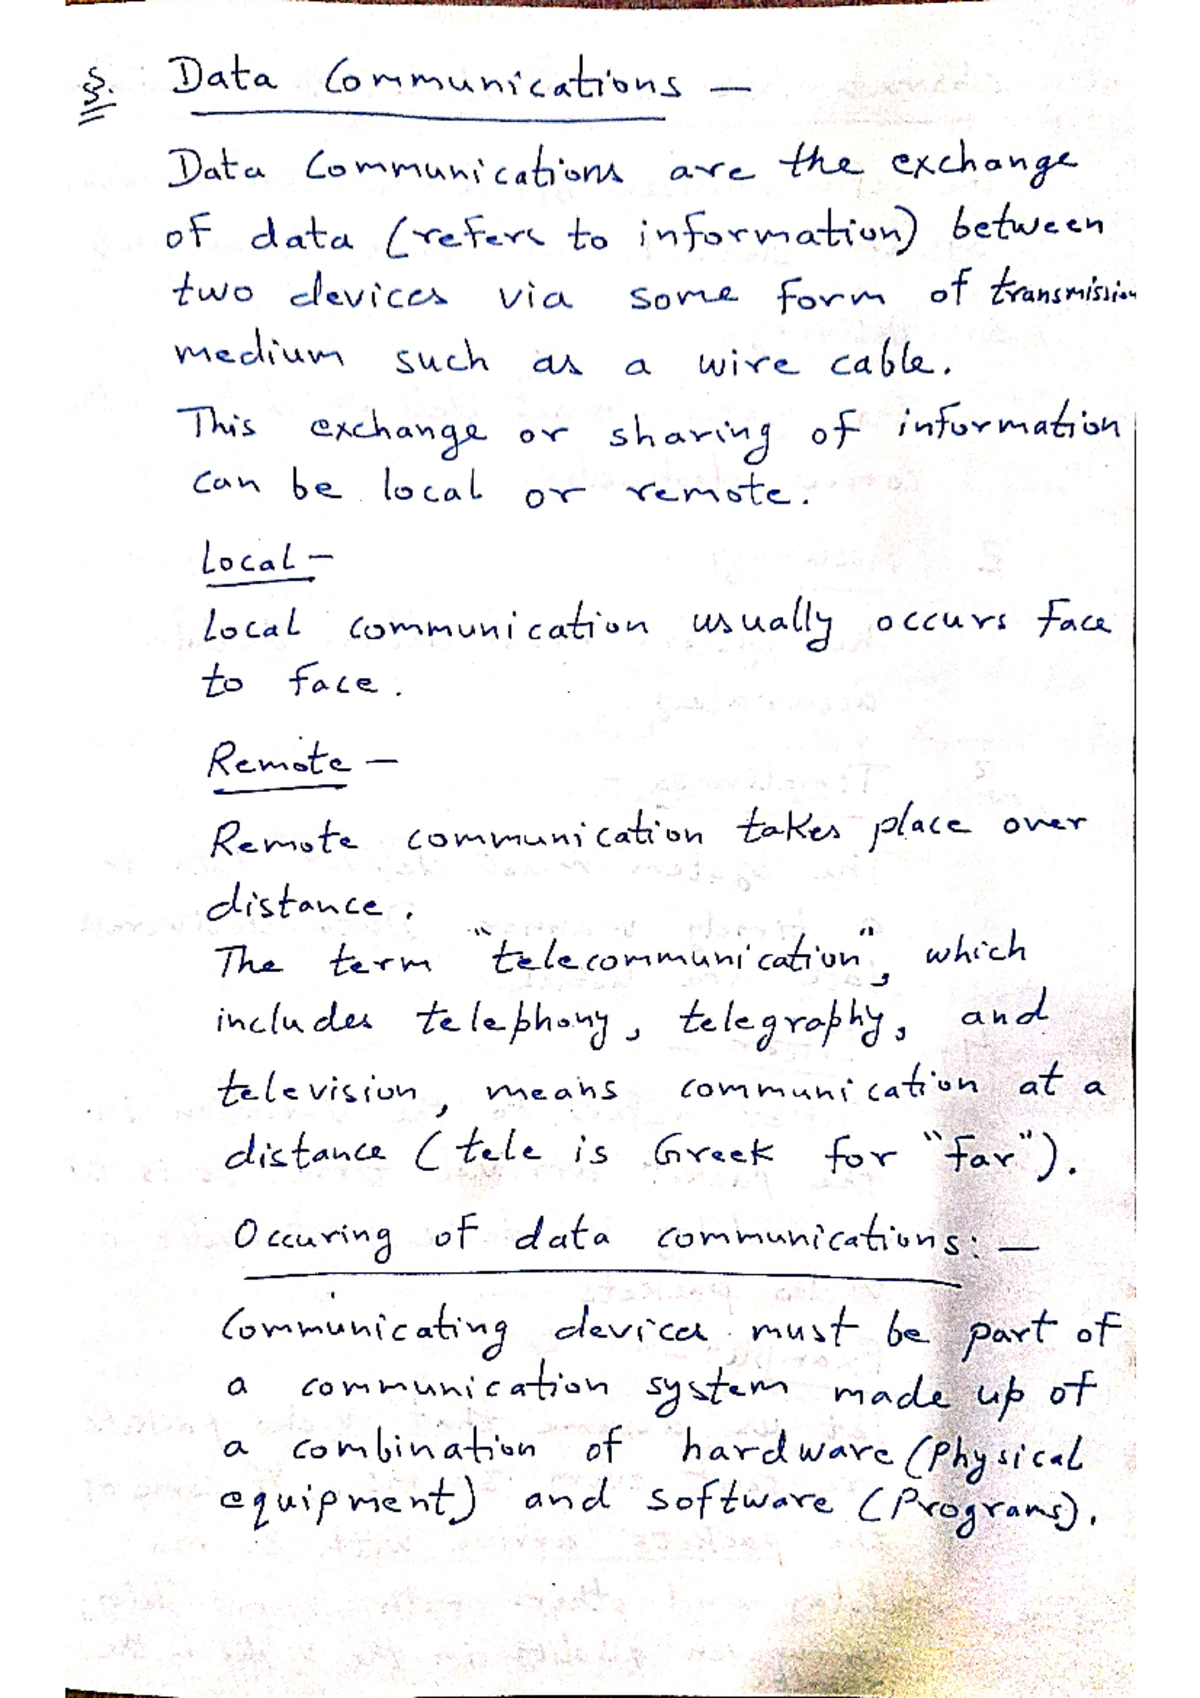 §. Data Communications —
Data Communications are the exchange
of data (refers to information) between
two devices via some form of transmission
medium such as a wire cable.
This exchange or sharing of information
can be local or remote.
Local —
Local communication usually occurs face
to face.
Remote —
Remote communication takes place over
distance.
The term "telecommunication", which
includes telephony, telegraphy, and
television, means communication at a
distance (tele is Greek for "far").
Occuring of data communications: —
Communicating devices must be part of
a communication system made up of
a combination of hardware (Physical
equipment) and software (Programs).